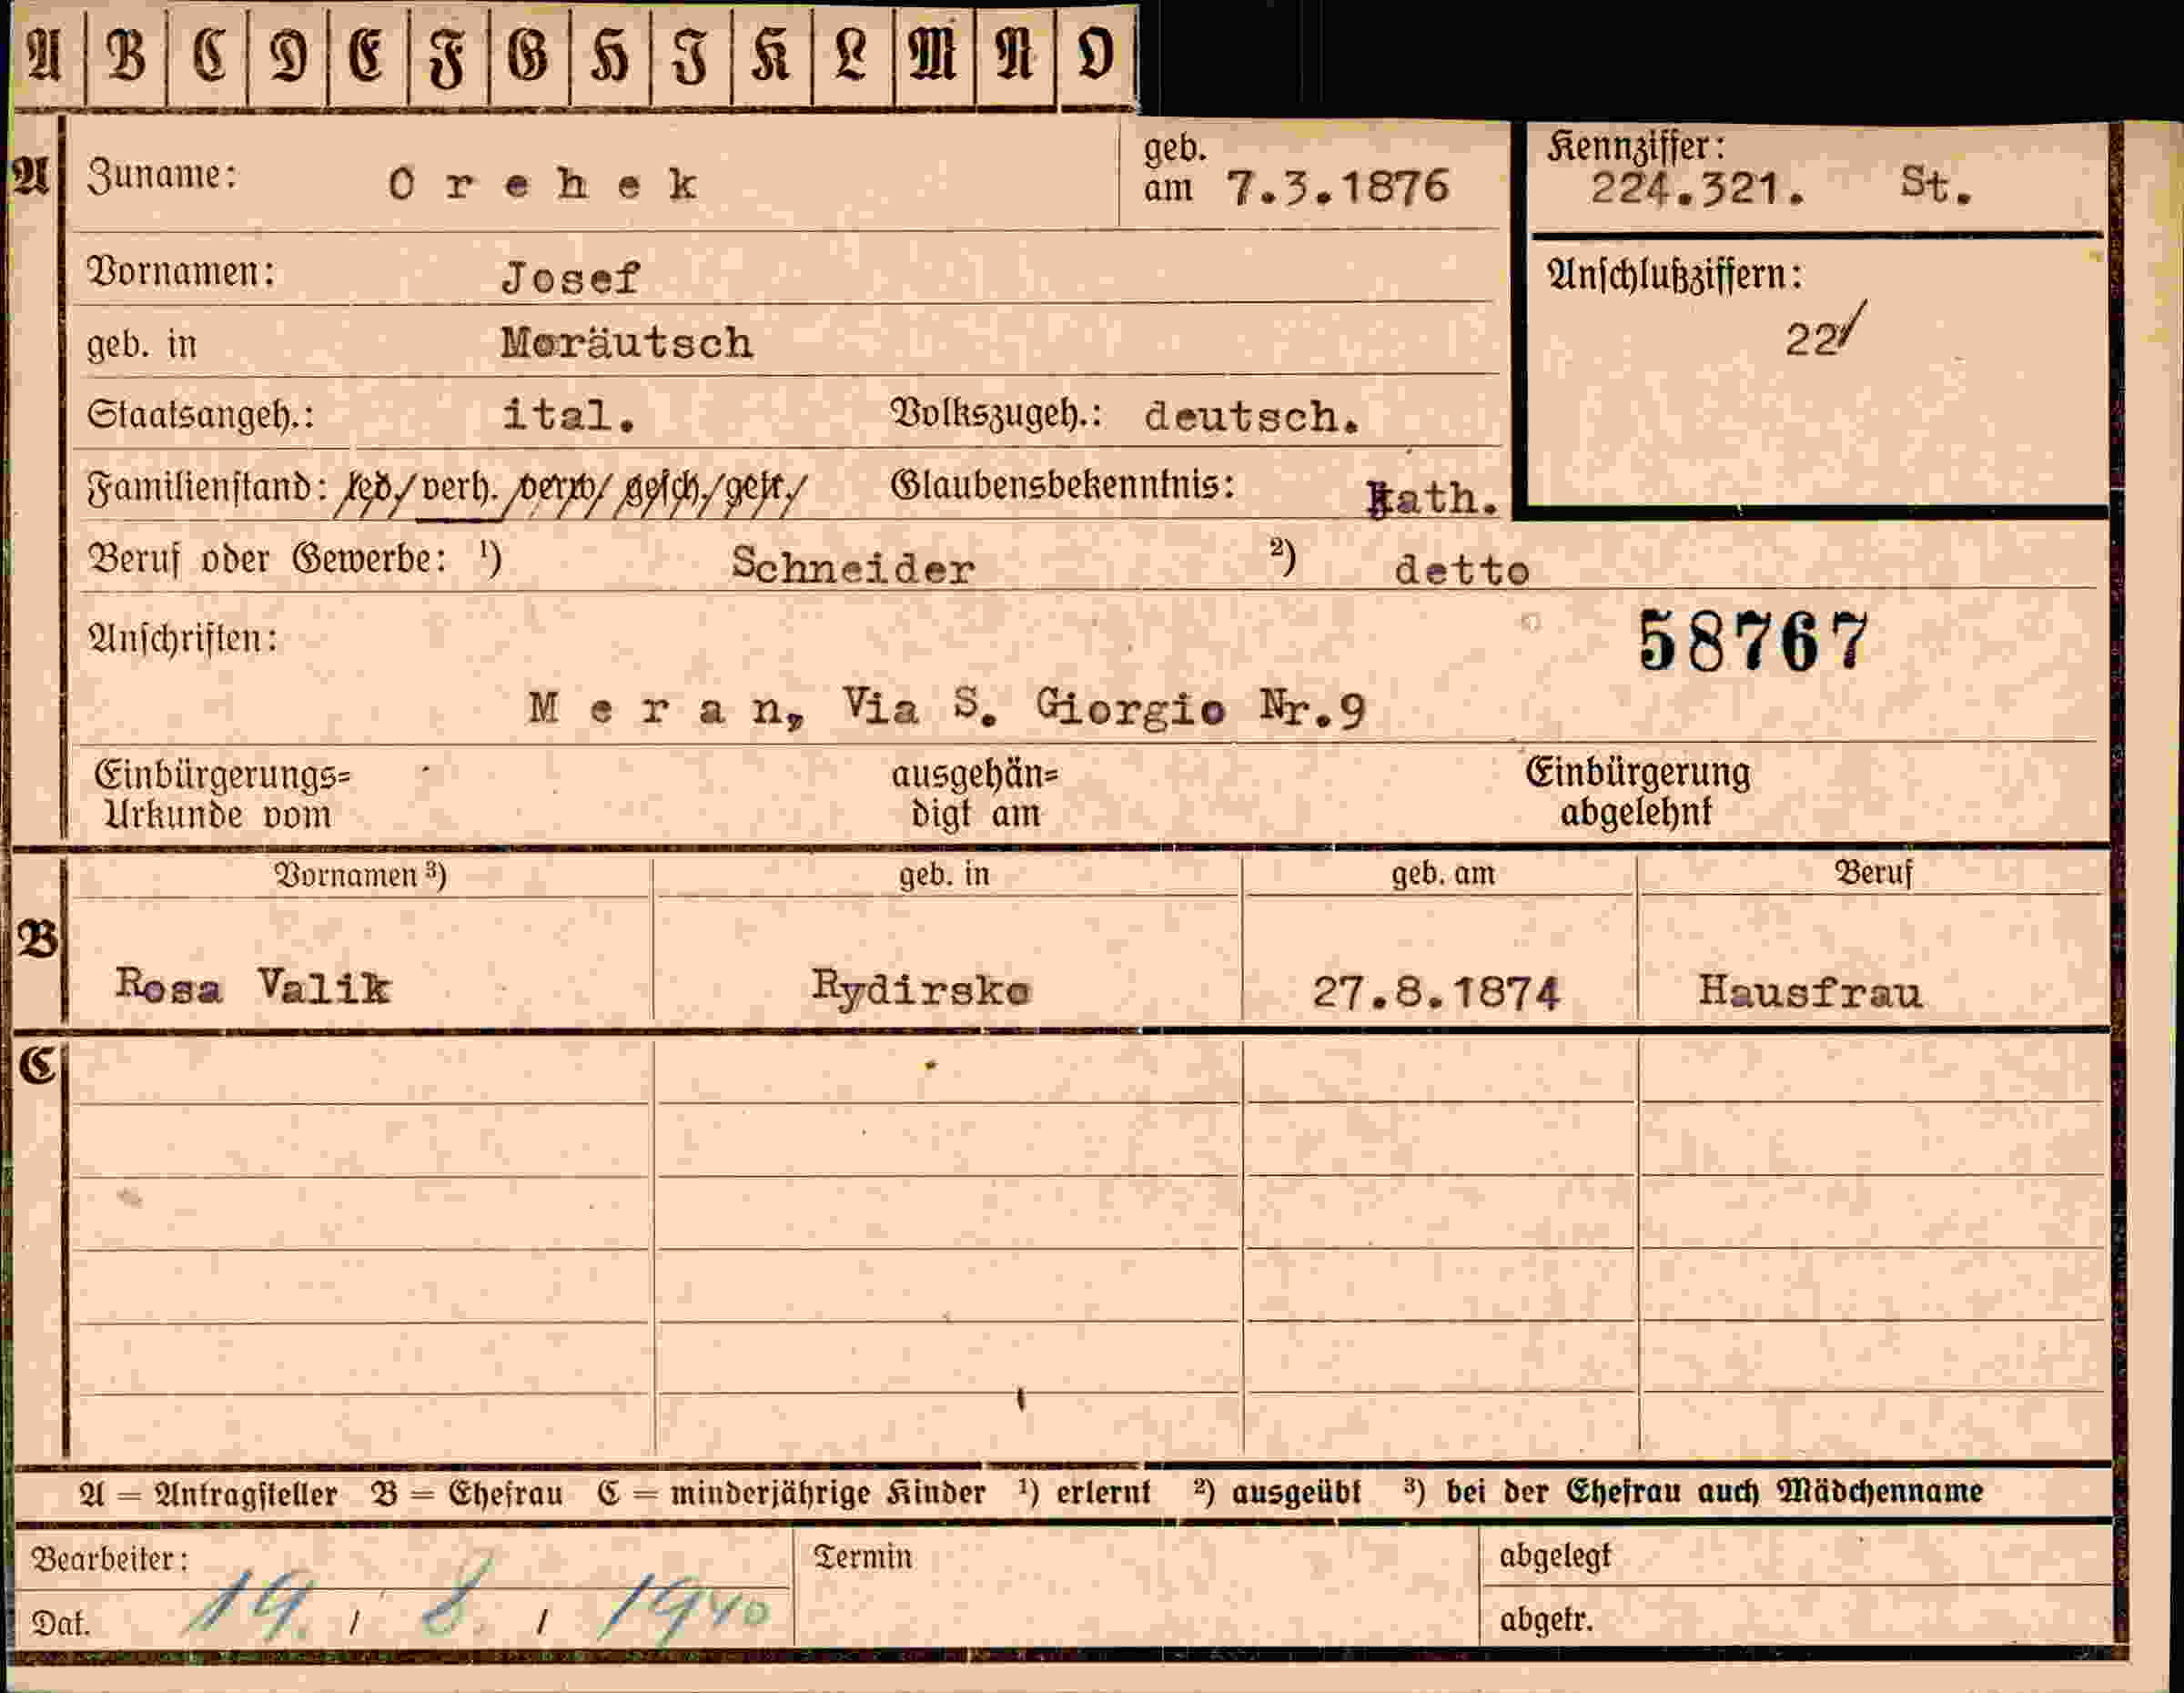 A B C D E F G H I K L M N O
A Zuname: Orehek geb. am 7.3.1876 Kennziffer: 224.321. St.
Vornamen: Josef Anschlußziffern:
geb. in Moräutsch 22/
Staatsangeh.: ital. Volkszugeh.: deutsch.
Familienstand: led./verh./verw/gesch./getr./ Glaubensbekenntnis: kath.
Beruf oder Gewerbe: ¹) Schneider ²) detto
Anschriften: 58767
Meran, Via S. Giorgio Nr.9
Einbürgerungs= ausgehän= Einbürgerung
Urkunde vom digt am abgelehnt
Vornamen ³) geb. in geb. am Beruf
B
Rosa Valik Rydirsko 27.8.1874 Hausfrau
C
A = Antragsteller B = Ehefrau C = minderjährige Kinder ¹) erlernt ²) ausgeübt ³) bei der Ehefrau auch Mädchenname
Bearbeiter: Termin abgelegt
Dat. 19. / 8. / 1940 abgetr.